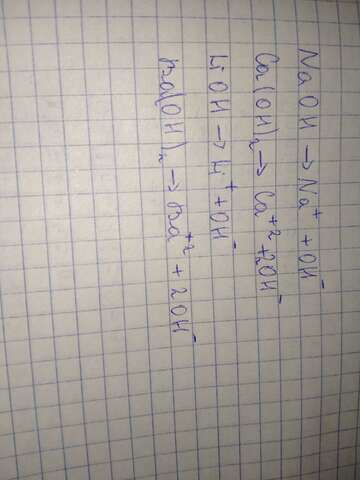 NaOH → Na⁺ + OH⁻
Ca(OH)₂ → Ca⁺² + 2OH⁻
LiOH → Li⁺ + OH⁻
Ba(OH)₂ → Ba⁺² + 2OH⁻